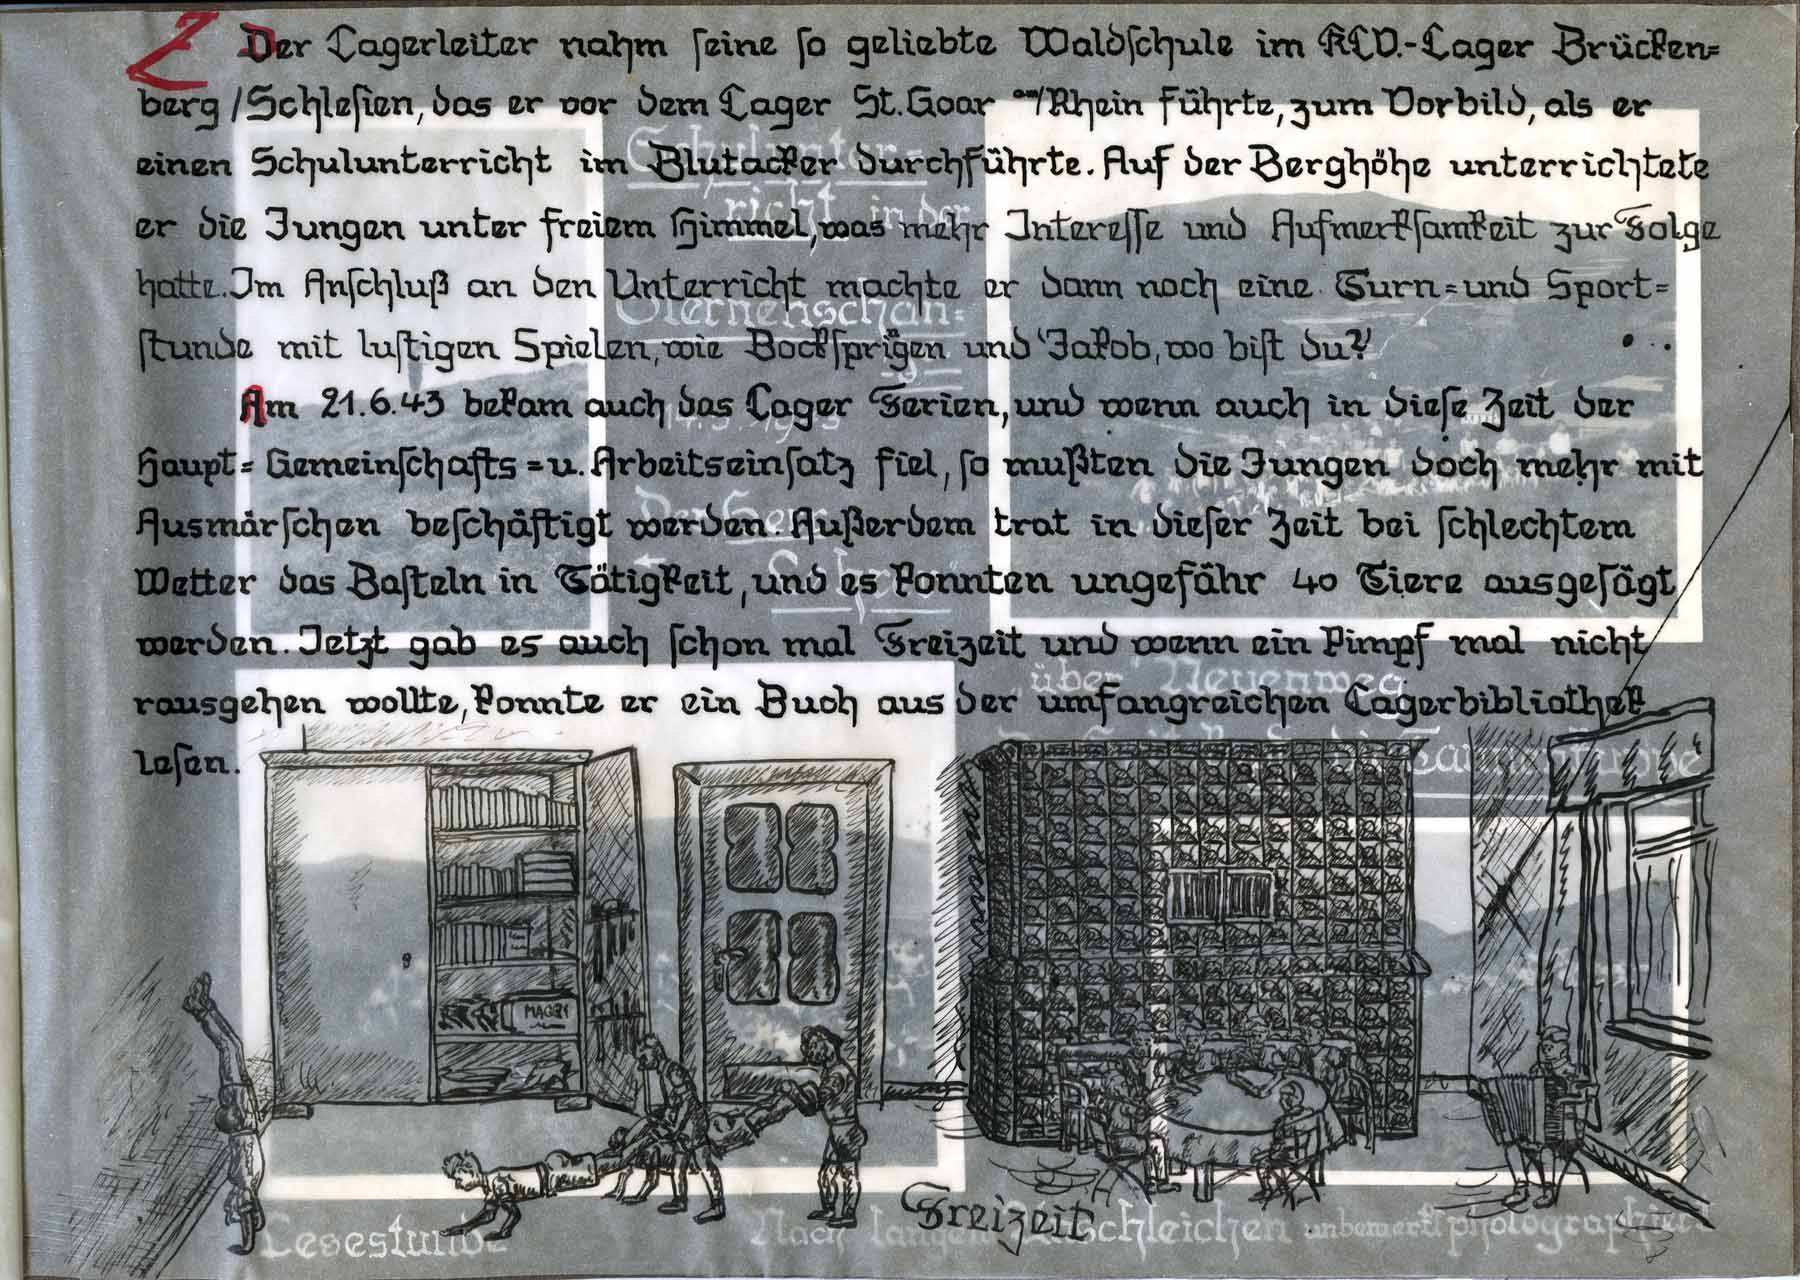 Der Lagerleiter nahm seine so geliebte Waldschule im KLV.-Lager Brücken=
berg/Schlesien, das er vor dem Lager St. Goar am/Rhein führte, zum Vorbild, als er
einen Schulunterricht im Blutacker durchführte. Auf der Berghöhe unterrichtete
er die Jungen unter freiem Himmel, was mehr Interesse und Aufmerksamkeit zur Folge
hatte. Im Anschluß an den Unterricht machte er dann noch eine Turn= und Sport=
stunde mit lustigen Spielen, wie Bocksprigen und 'Jakob, wo bist du?'
Am 21.6.43 bekam auch das Lager Ferien, und wenn auch in diese Zeit der
Haupt= Gemeinschafts= u. Arbeitseinsatz fiel, so mußten die Jungen doch mehr mit
Ausmärschen beschäftigt werden. Außerdem trat in dieser Zeit bei schlechtem
Wetter das Basteln in Tätigkeit, und es konnten ungefähr 40 Tiere ausgesägt
werden. Jetzt gab es auch schon mal Freizeit und wenn ein Pimpf mal nicht
rausgehen wollte, konnte er ein Buch aus der umfangreichen Lagerbibliothek
lesen.
Schulunter=
richt in der
Sternenschan=
über Neuenweg
MAGGI
Freizeit
Lesestunde
Nach langem Anschleichen unbemerkt photographiert